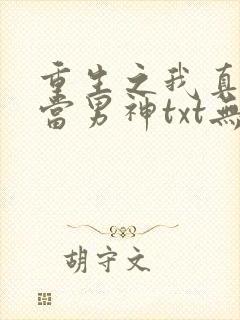 重生之我真
當男神txt無
胡守文